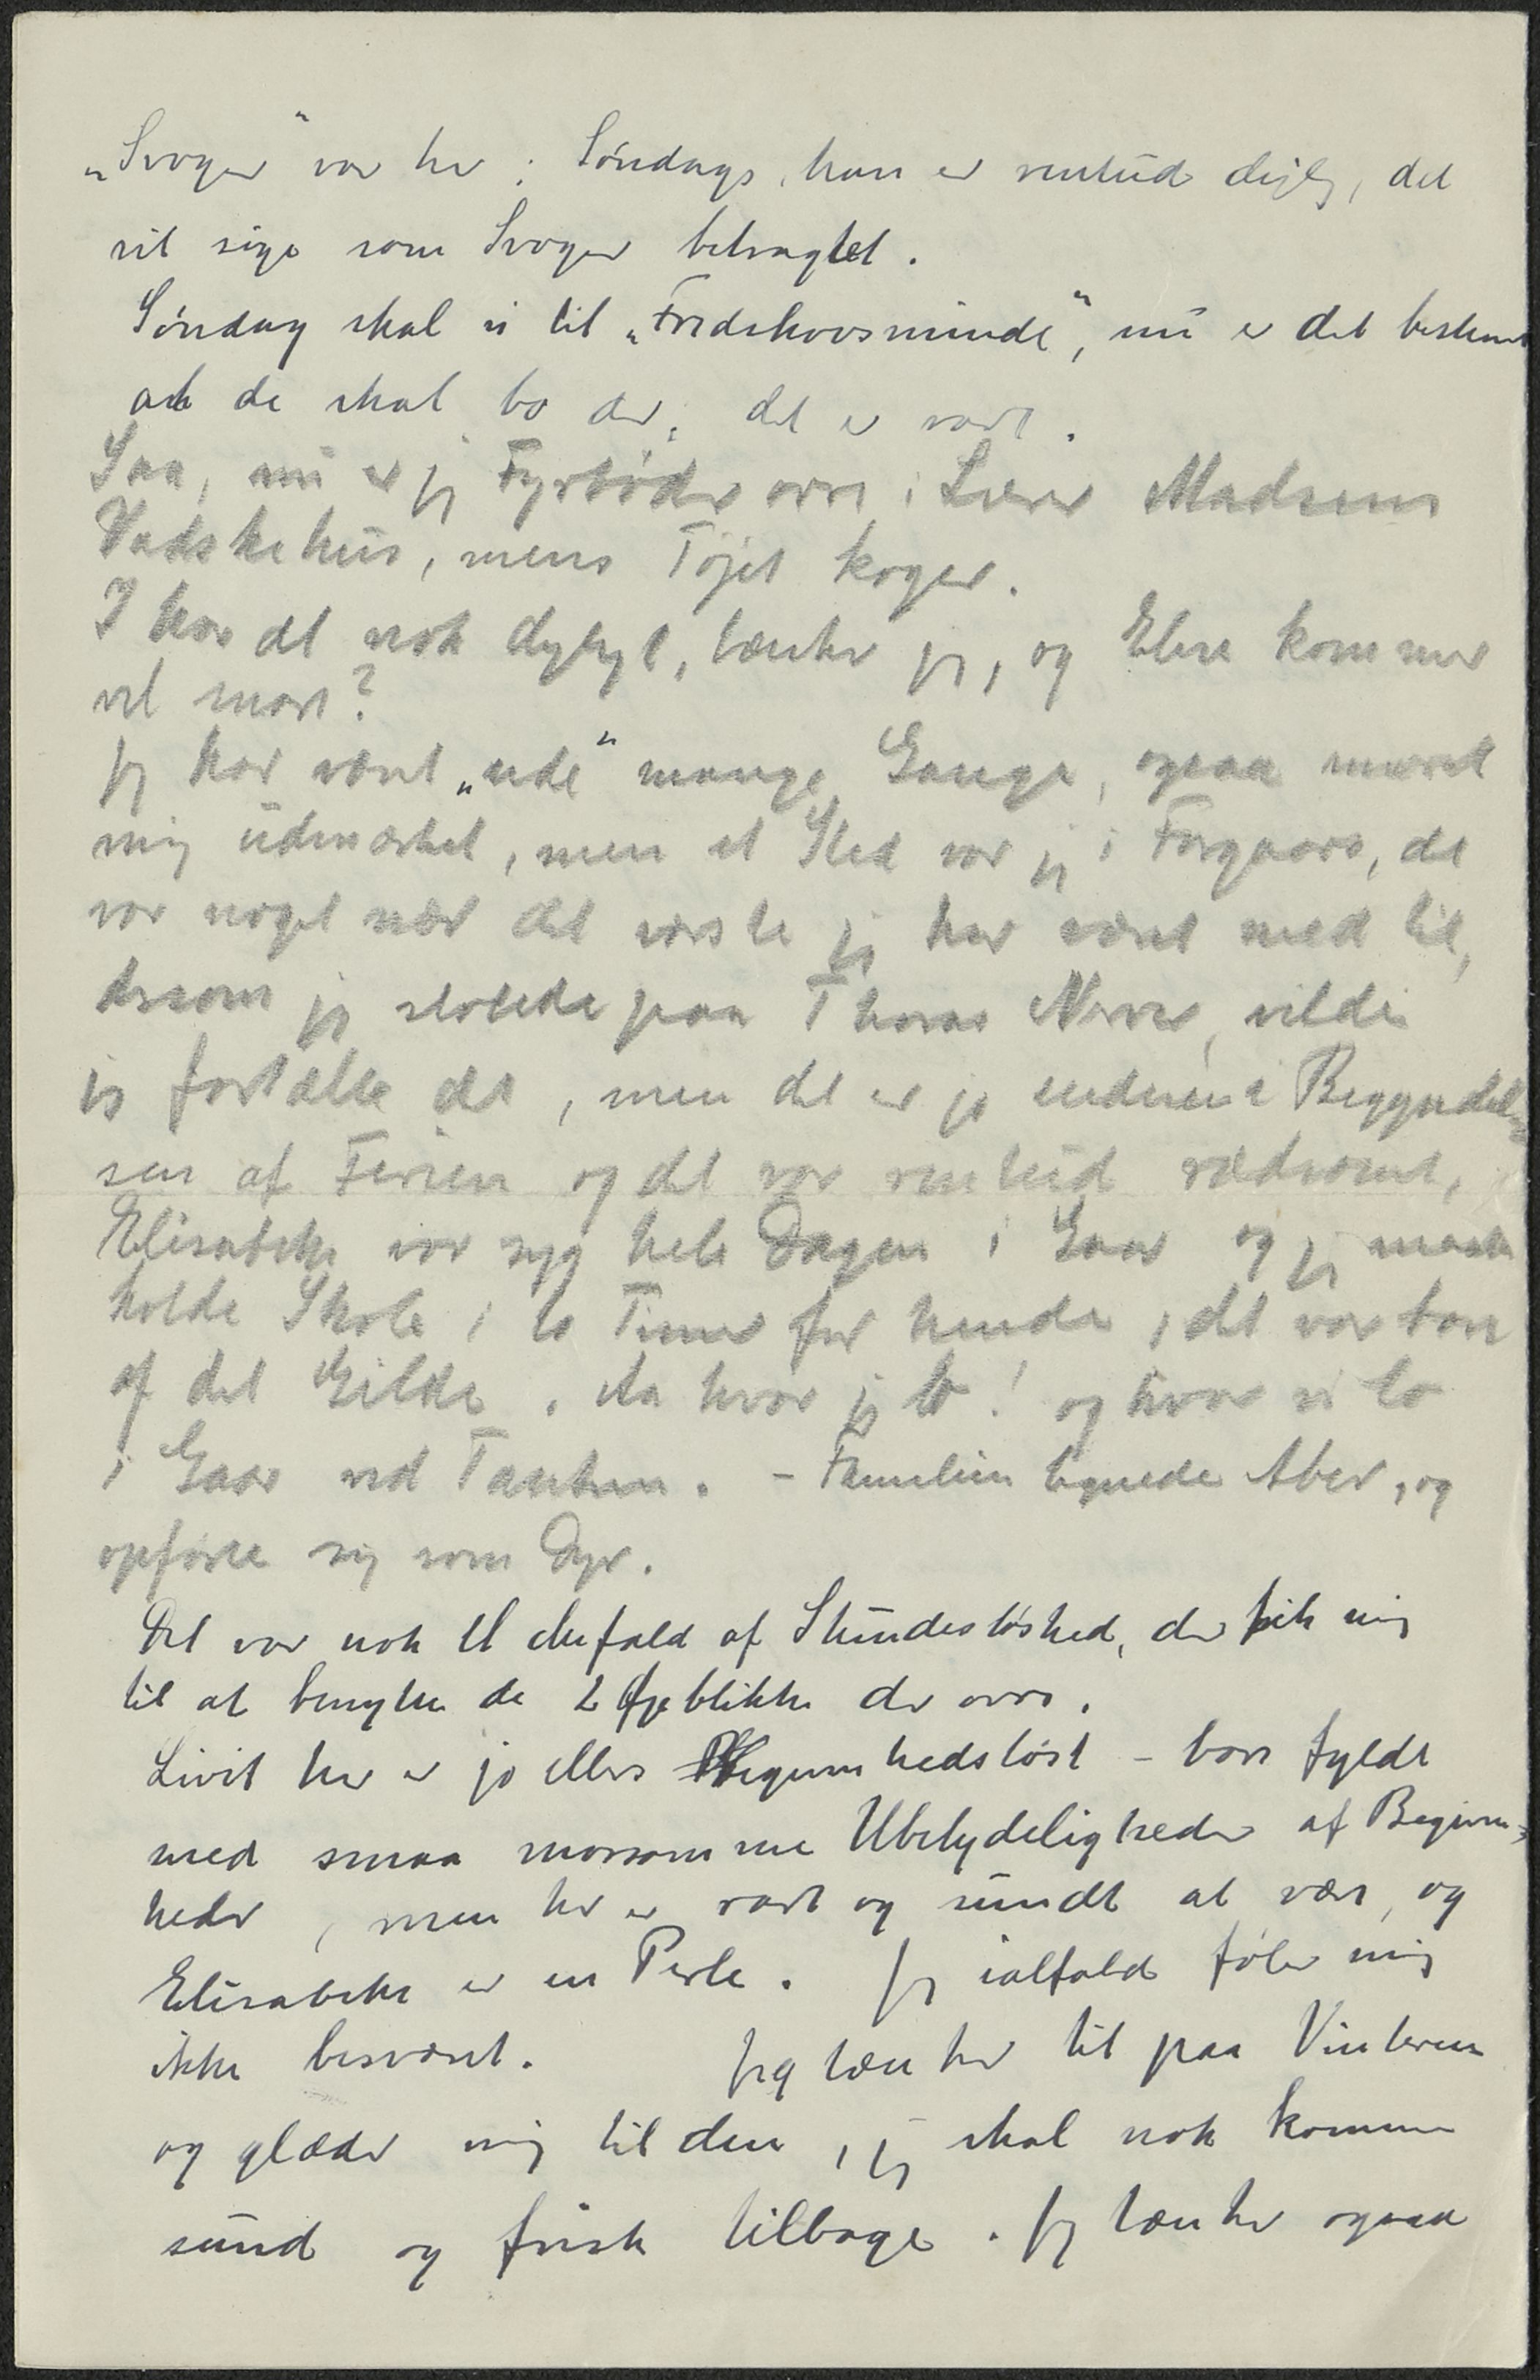 „Svoger“ var her i Søndags, han er rentud dejlig, det
vil sige som Svoger betragtet.
Søndag skal vi til „Fredskovsminde“, nu er det bestemt
at de skal bo der, det er rart.
Saa, nu er jeg Fyrbøder ovre i Lærer Madsens
Vadskehus, mens Tøjet koger.
I har det nok dygtigt, tænker jeg, og Else kommer
vel snart?
jeg har været „ude“ mange Gange, ogsaa moret
mig udmærket, men et Sted var jeg i Forgaars, det
var noget nær det værste jeg har været med til,
dersom jeg stolede paa Thoras Nerver, vilde
jeg fortælle det, men det er jo endnu i Begyndel-
sen af Ferien og det var rentud rædsomt,
Elisabeth var syg hele Dagen i Gaar og jeg maatte
holde Skole i to Timer for hende, det var bare
af det Gilde. Aa hvor jeg lo! og hvor vi lo
i Gaar ved Tanken. – Familien lignede Aber, og
opførte sig som Dyr.
Det var nok et Anfald af Stundesløshed, der fik mig
til at benytte de 2 Øjeblikke der ovre.
Livet her er jo ellers Begivenhedsløst – bare fyldt
med smaa morsomme Ubetydeligheder af Begiven-
heder, men her er rart og sundt at være, og
Elisabeth er en Perle. Jeg ialfald føler mig
ikke besværet. Jeg tænker tit paa Vinteren
og glæder mig til den, jeg skal nok komme
sund og frisk tilbage. Jeg tænker ogsaa